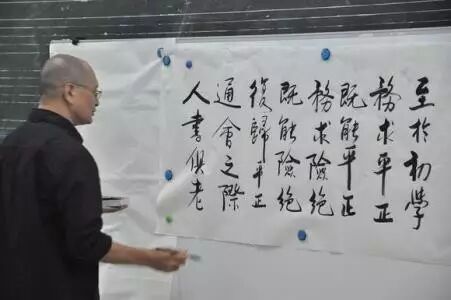 至於初學
務求平正
既能平正
務求險絶
既能險絶
復歸平正
通會之際
人書俱老